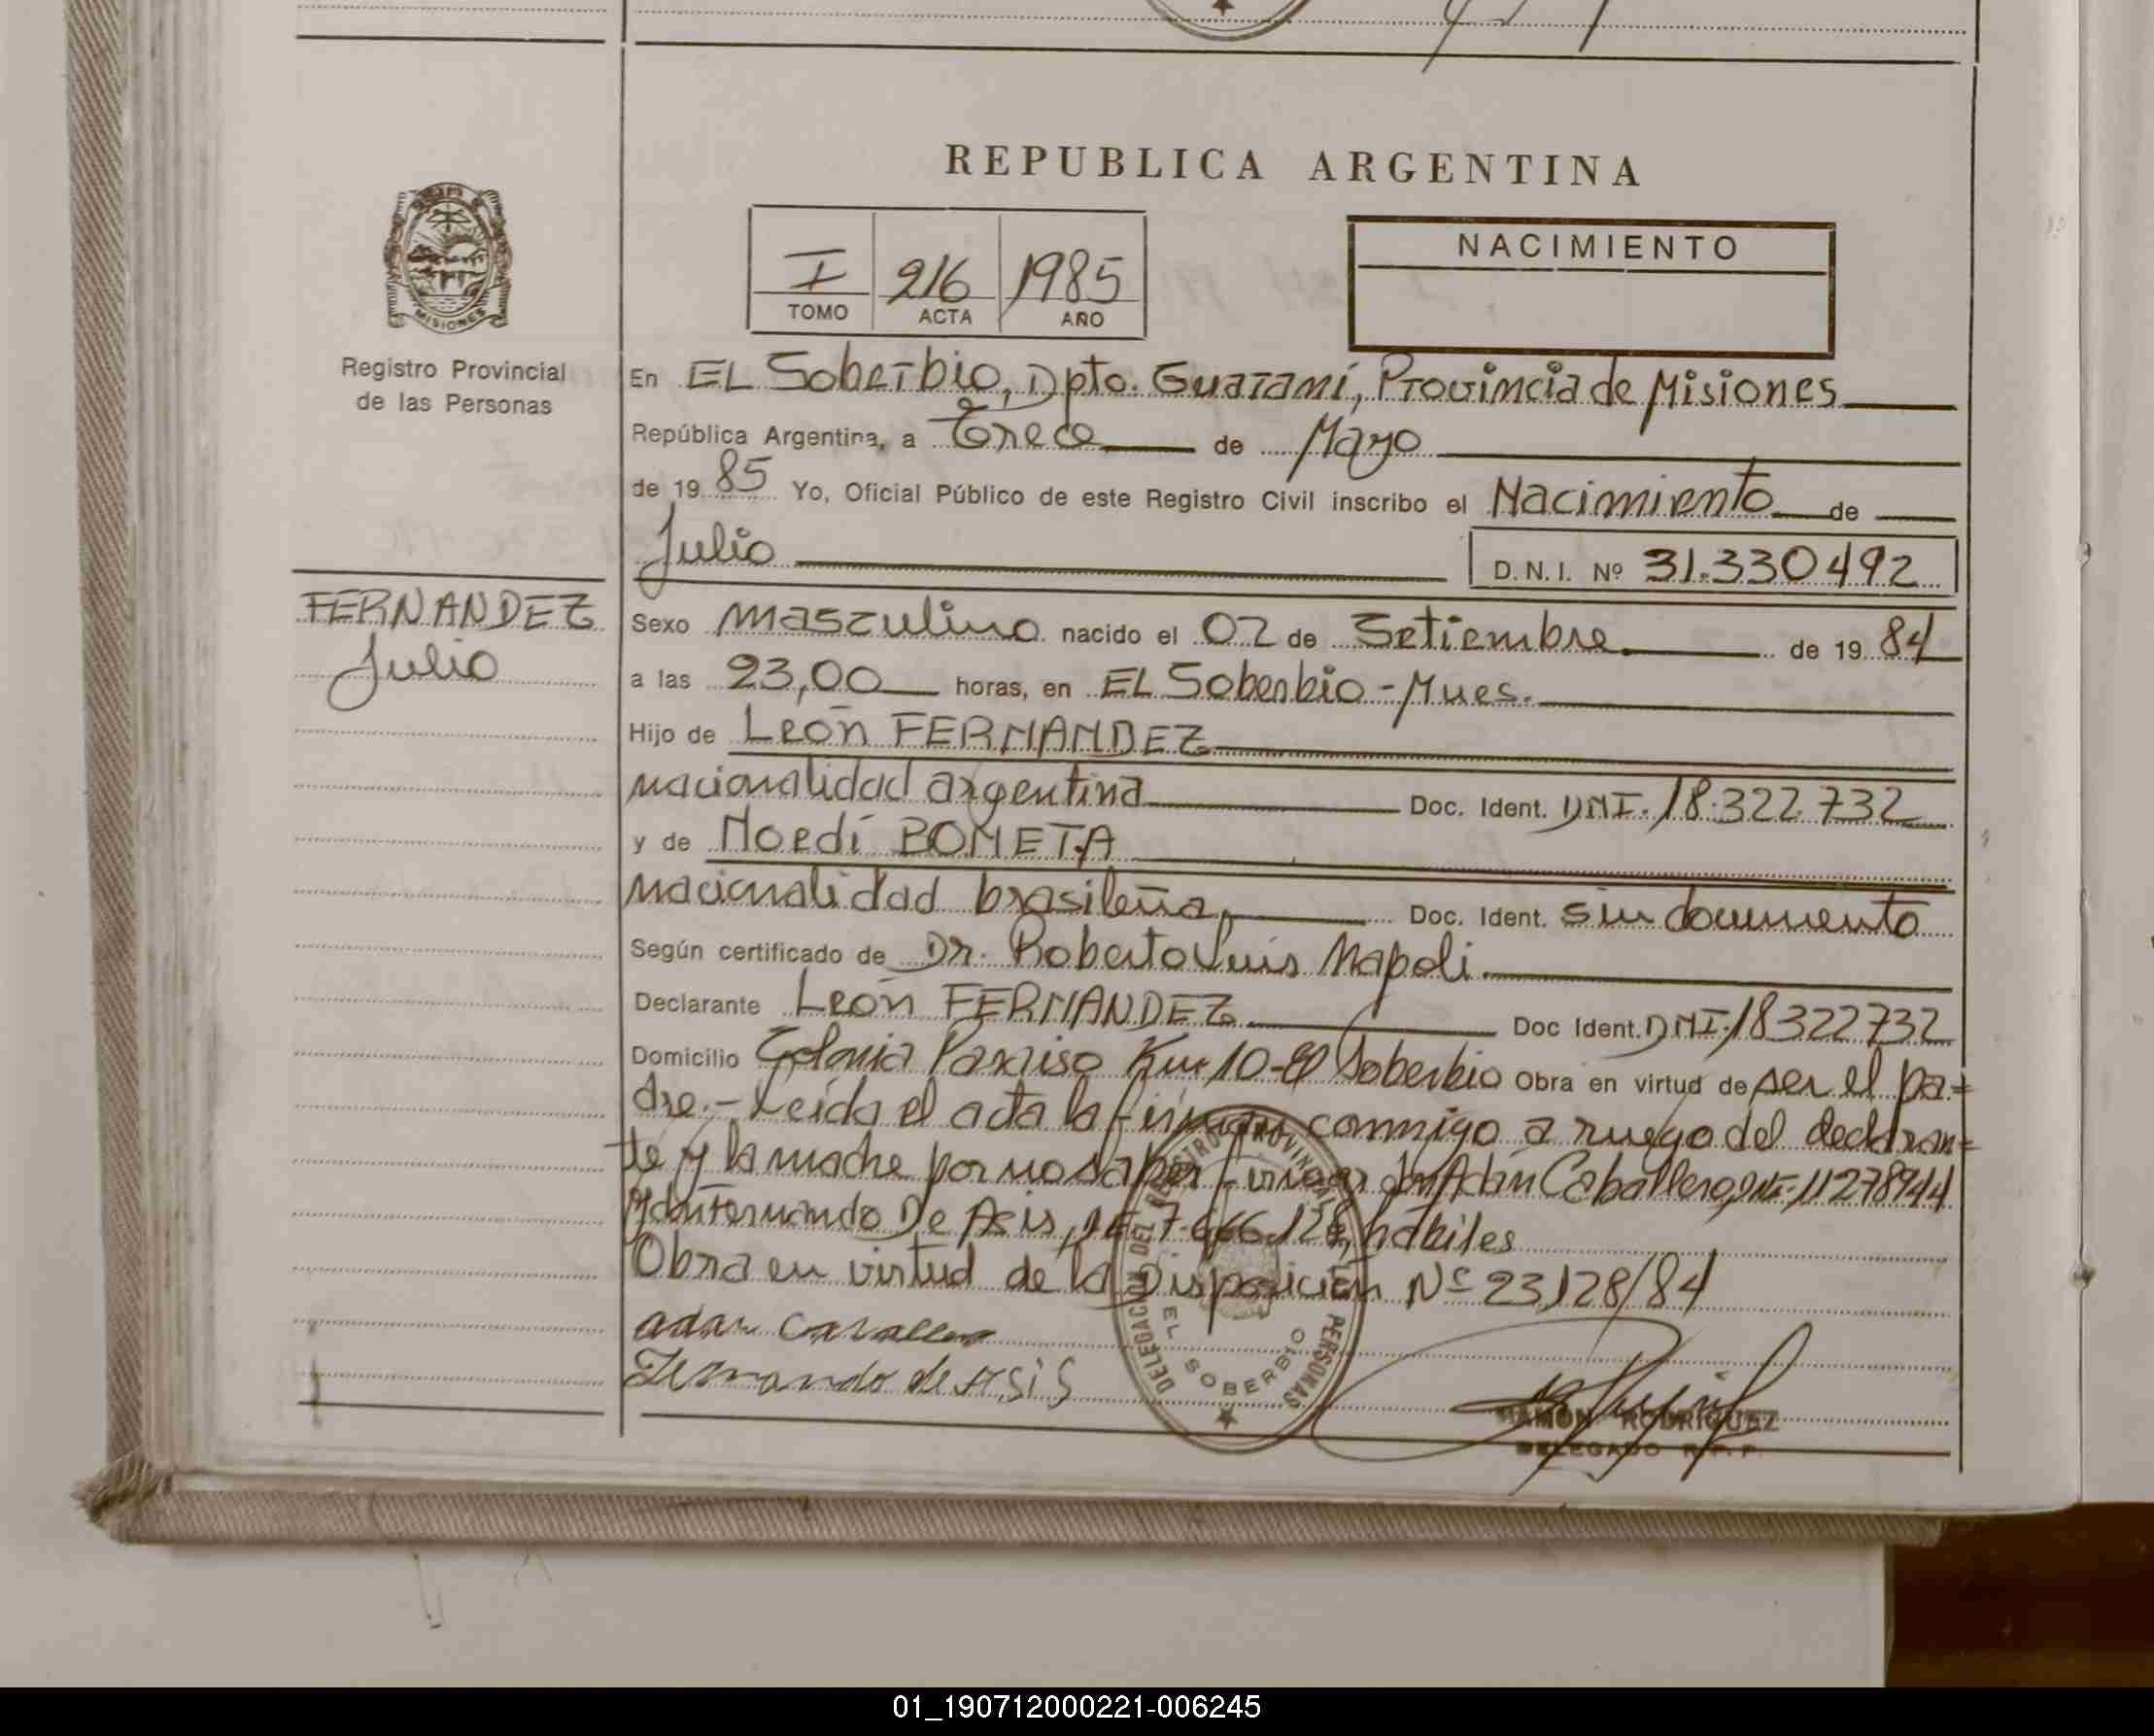 REPUBLICA ARGENTINA
MISIONES
Registro Provincial
de las Personas
I 216 1985
TOMO ACTA AÑO
NACIMIENTO
En EL Soberbio, Dpto. Guaraní, Provincia de Misiones
República Argentina, a Trece de Mayo
de 1985 Yo, Oficial Público de este Registro Civil inscribo el Nacimiento de
Julio
D.N.I. Nº 31.330492
FERNANDEZ
Julio
Sexo masculino nacido el 02 de Setiembre de 1984
a las 23,00 horas, en EL Soberbio-Mnes.
Hijo de León FERNANDEZ
nacionalidad argentina Doc. Ident. DNI. 18.322.732
y de Noedí BONETA
nacionalidad brasileña, Doc. Ident. sin documento
Según certificado de Dr. Roberto Luis Napoli.
Declarante León FERNANDEZ Doc Ident. DNI. 18322732
Domicilio Colonia Paraiso Km 10-El Soberbio Obra en virtud de ser el pa=
dre.- Leída el acta la firman conmigo a ruego del declaran=
te y la madre por no saber firmar don Adán Caballero, DNI. 11278944
y don Fernando De Asis, 7.666.128, hábiles
Obra en virtud de la Disposición Nº 23128/84
adan Cavallero
Fernando de Asis
DELEGACION DEL REGISTRO PROVINCIAL PERSONAS
EL SOBERBIO
RAMON RODRIGUEZ
DELEGADO R.P.P.
01_190712000221-006245